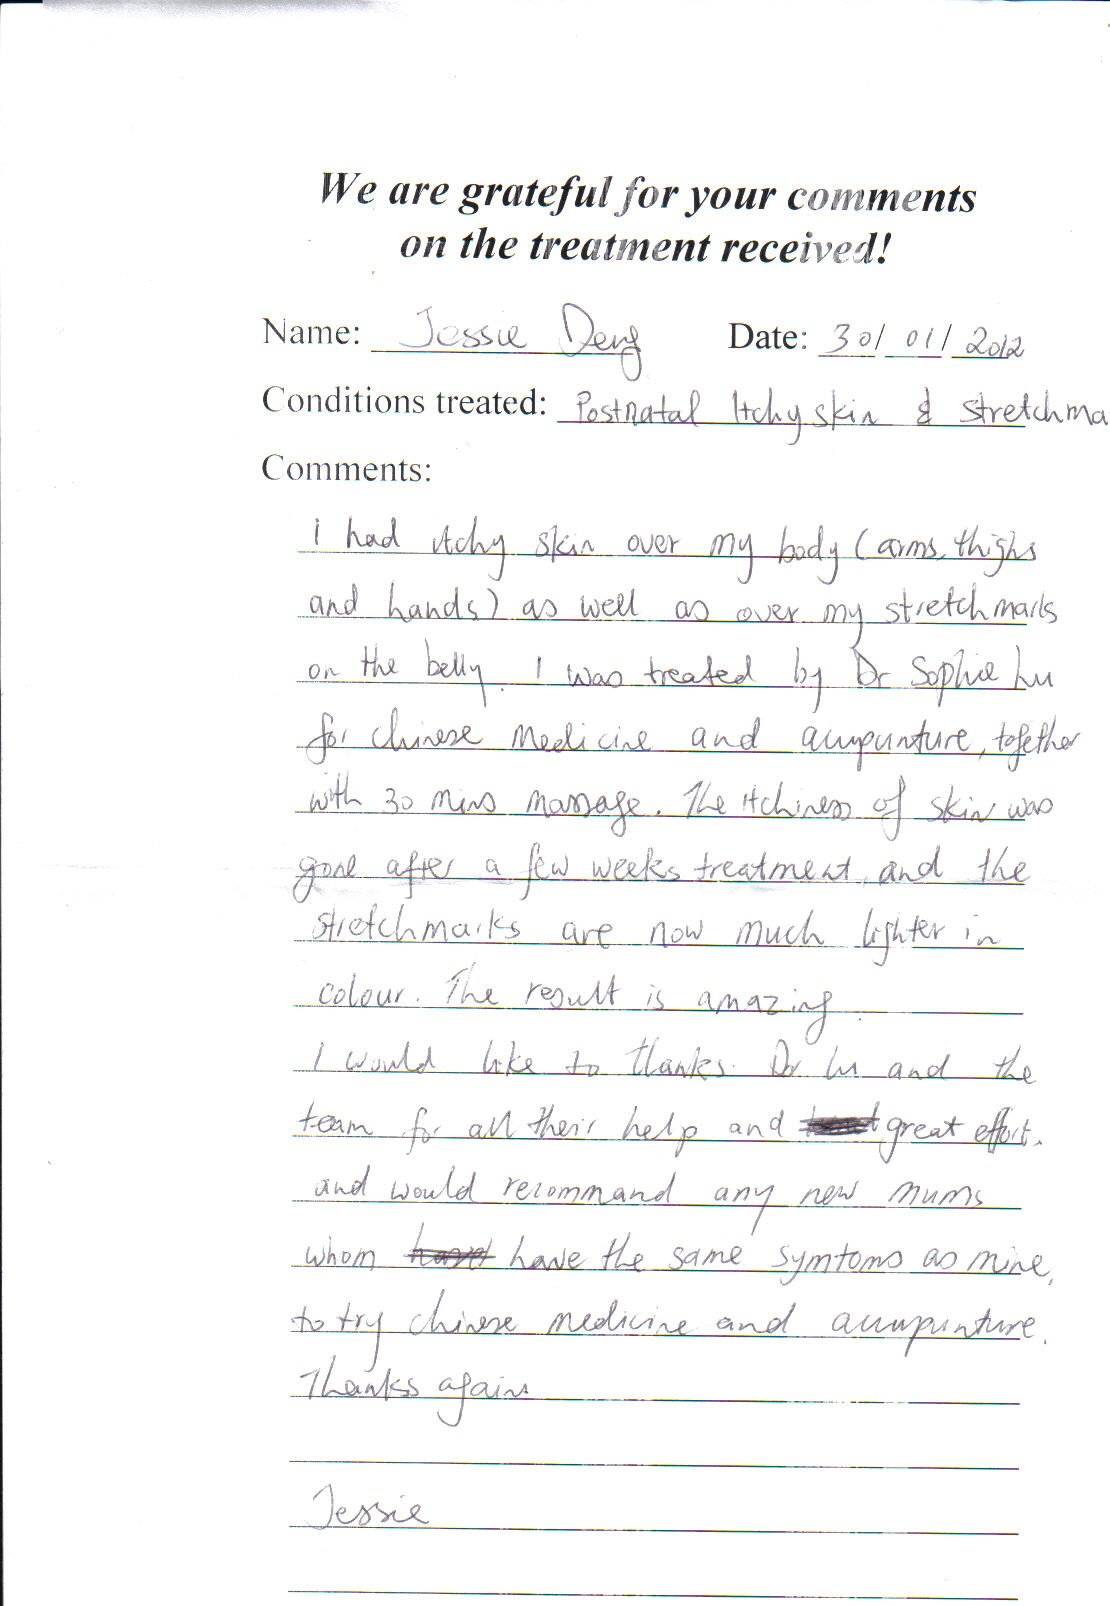 We are grateful for your comments
on the treatment received!
Name: Jessie Deng Date: 30/01/2012
Conditions treated: Postnatal Itchy skin & stretchma
Comments:
i had itchy skin over my body (arms, thighs
and hands) as well as over my stretchmarks
on the belly. I was treated by Dr Sophie Lu
for chinese medicine and acupunture, together
with 30 mins massage. The itchiness of skin was
gone after a few weeks treatment, and the
stretchmarks are now much lighter in
colour. The result is amazing.
I would like to thanks. Dr Lu and the
team for all their help and great effort.
and would recommand any new mums
whom have the same symtoms as mine,
to try chinese medicine and acupunture.
Thanks again
Jessie